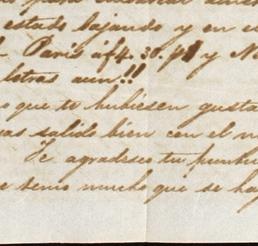 estado bajando y en e
Paris á f4. 30. y N
letras aun!!
o que te hubiesen gusta
as salido bien con el m
Te agradesco tu punt
e temo mucho que se ha